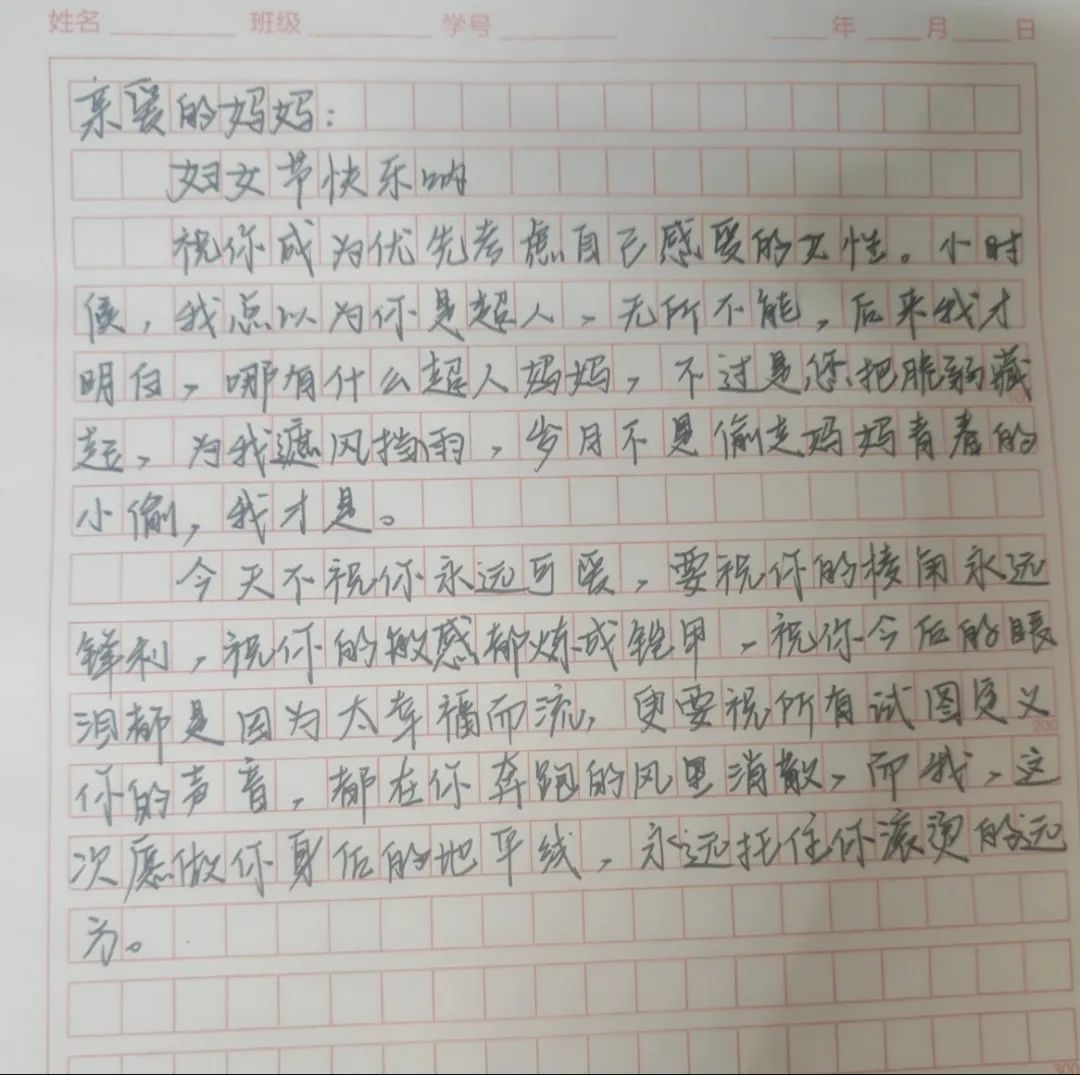 姓名 班级 学号 年 月 日
亲爱的妈妈：
妇女节快乐呐
祝你成为优先考虑自己感受的女性。小时
候，我总以为你是超人，无所不能，后来我才
明白，哪有什么超人妈妈，不过是您把脆弱藏
起，为我遮风挡雨，岁月不是偷走妈妈青春的
小偷，我才是。
今天不祝你永远可爱，要祝你的棱角永远
锋利，祝你的敏感都炼成铠甲，祝你今后的眼
泪都是因为太幸福而流，更要祝所有试图定义
200
你的声音，都在你奔跑的风里消散，而我，这
次愿做你身后的地平线，永远托住你滚烫的远
方。
300